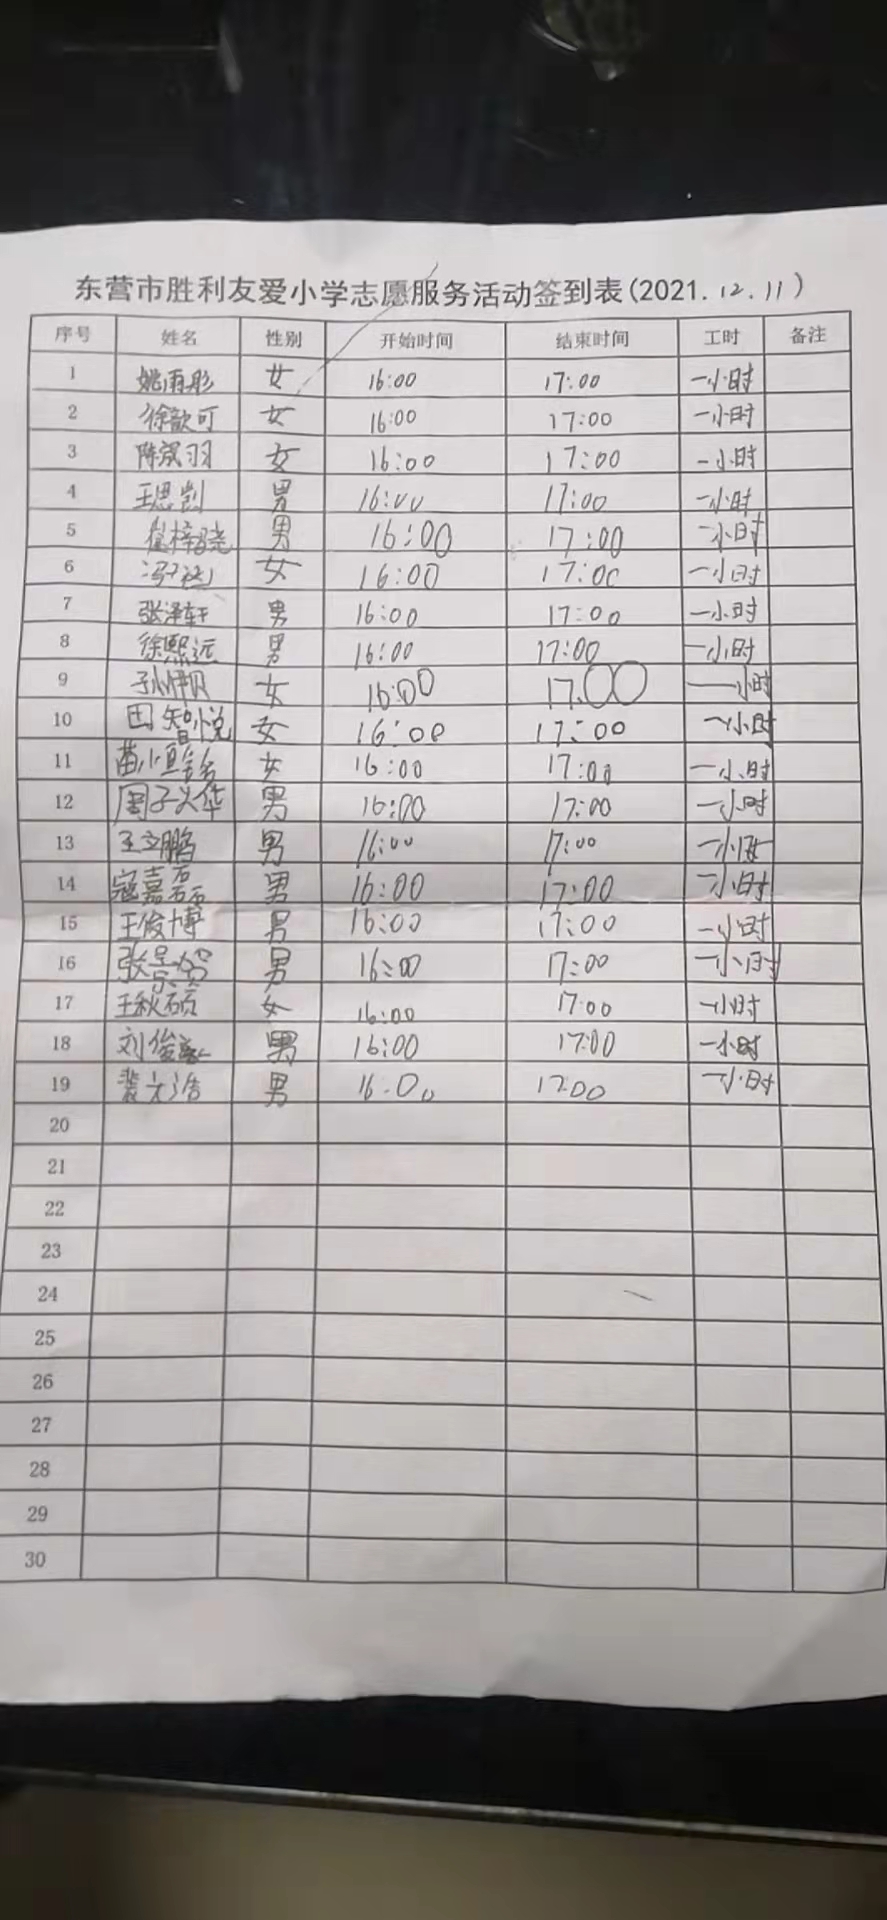 东营市胜利友爱小学志愿服务活动签到表(2021.12.11)
序号 姓名 性别 开始时间 结束时间 工时 备注
1 姚雨彤 女 16:00 17:00 一小时
2 徐歆可 女 16:00 17:00 一小时
3 陈羽 女 16:00 17:00 一小时
4 王思凯 男 16:00 17:00 一小时
5 崔梓晓 男 16:00 17:00 一小时
6 女 16:00 17:00 一小时
7 张泽轩 男 16:00 17:00 一小时
8 徐熙远 男 16:00 17:00 一小时
9 孙贝 女 16:00 17:00 一小时
10 田智悦 女 16:00 17:00 一小时
11 苗小 女 16:00 17:00 一小时
12 周子华 男 16:00 17:00 一小时
13 王立鹏 男 16:00 17:00 一小时
14 寇嘉磊 男 16:00 17:00 一小时
15 王俊博 男 16:00 17:00 一小时
16 张景贺 男 16:00 17:00 一小时
17 王秋硕 女 16:00 17:00 一小时
18 刘俊 男 16:00 17:00 一小时
19 裴文浩 男 16:00 17:00 一小时
20
21
22
23
24
25
26
27
28
29
30